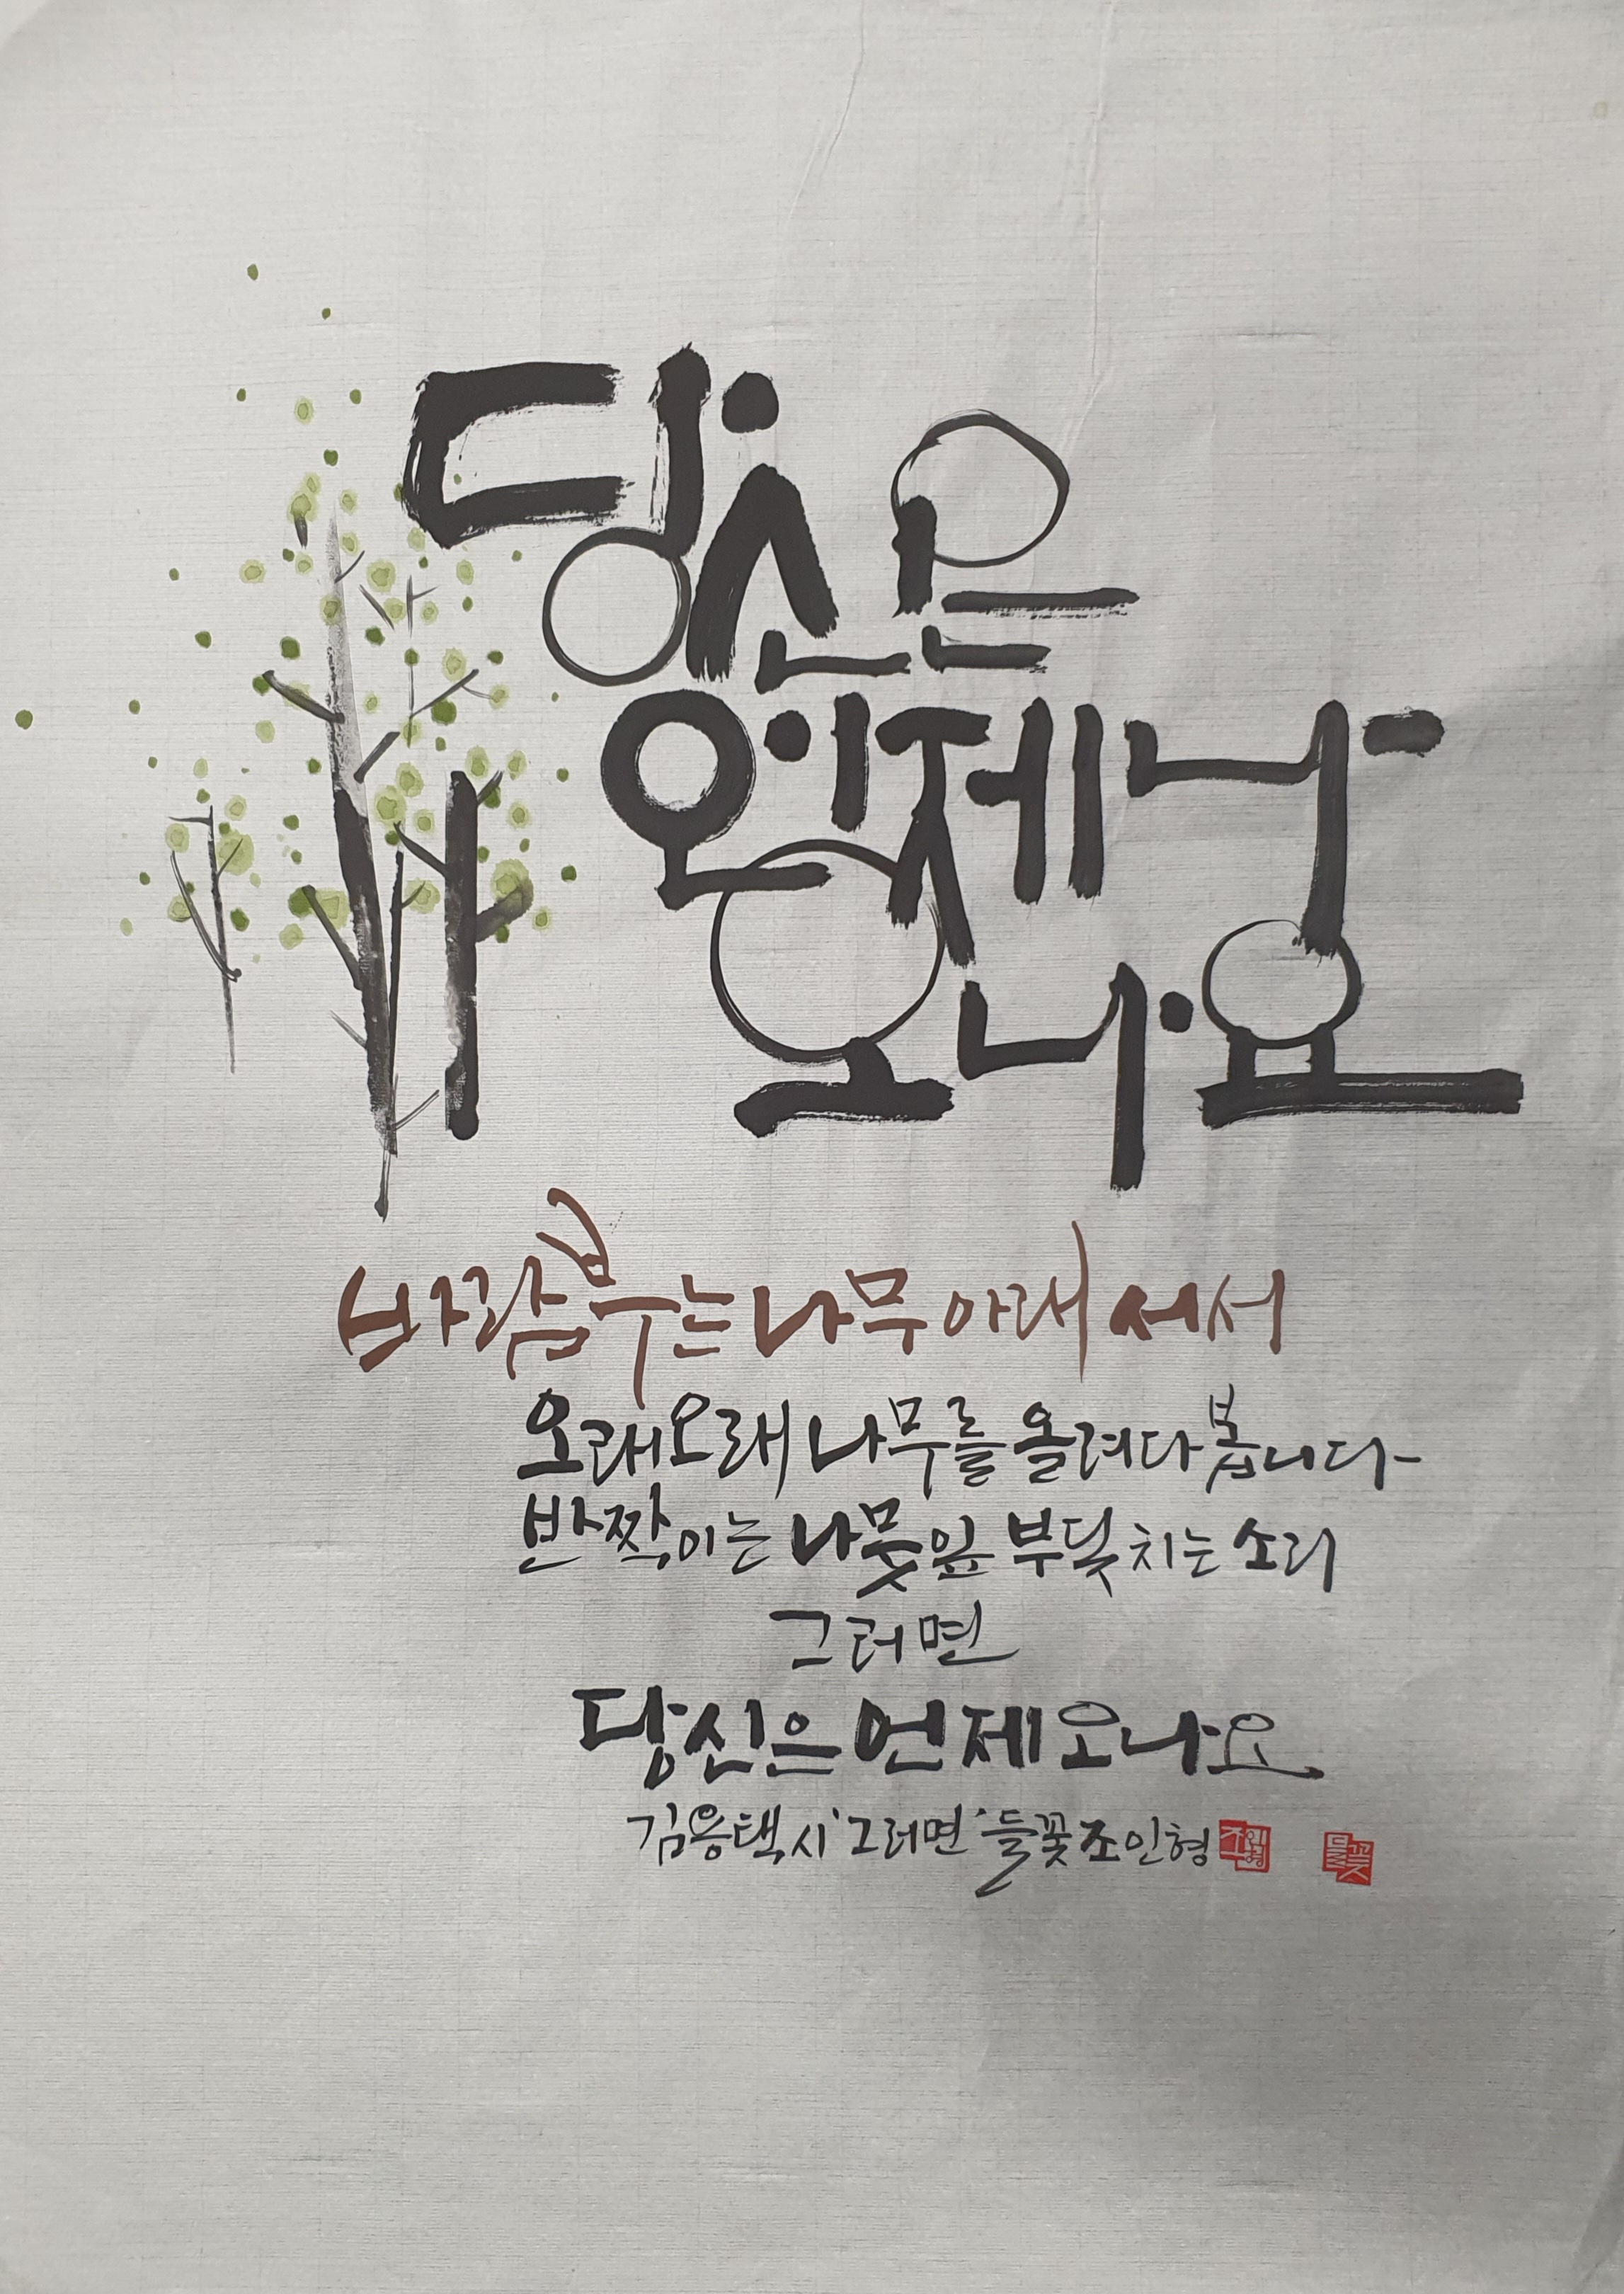 당신은
언제나
오나요
바람부는 나무 아래 서서
오래오래 나무를 올려다봅니다
반짝이는 나뭇잎 부딪치는 소리
그러면
당신은 언제 오나요
김용택 시 '그러면' 들꽃 조인형
조인형
들꽃